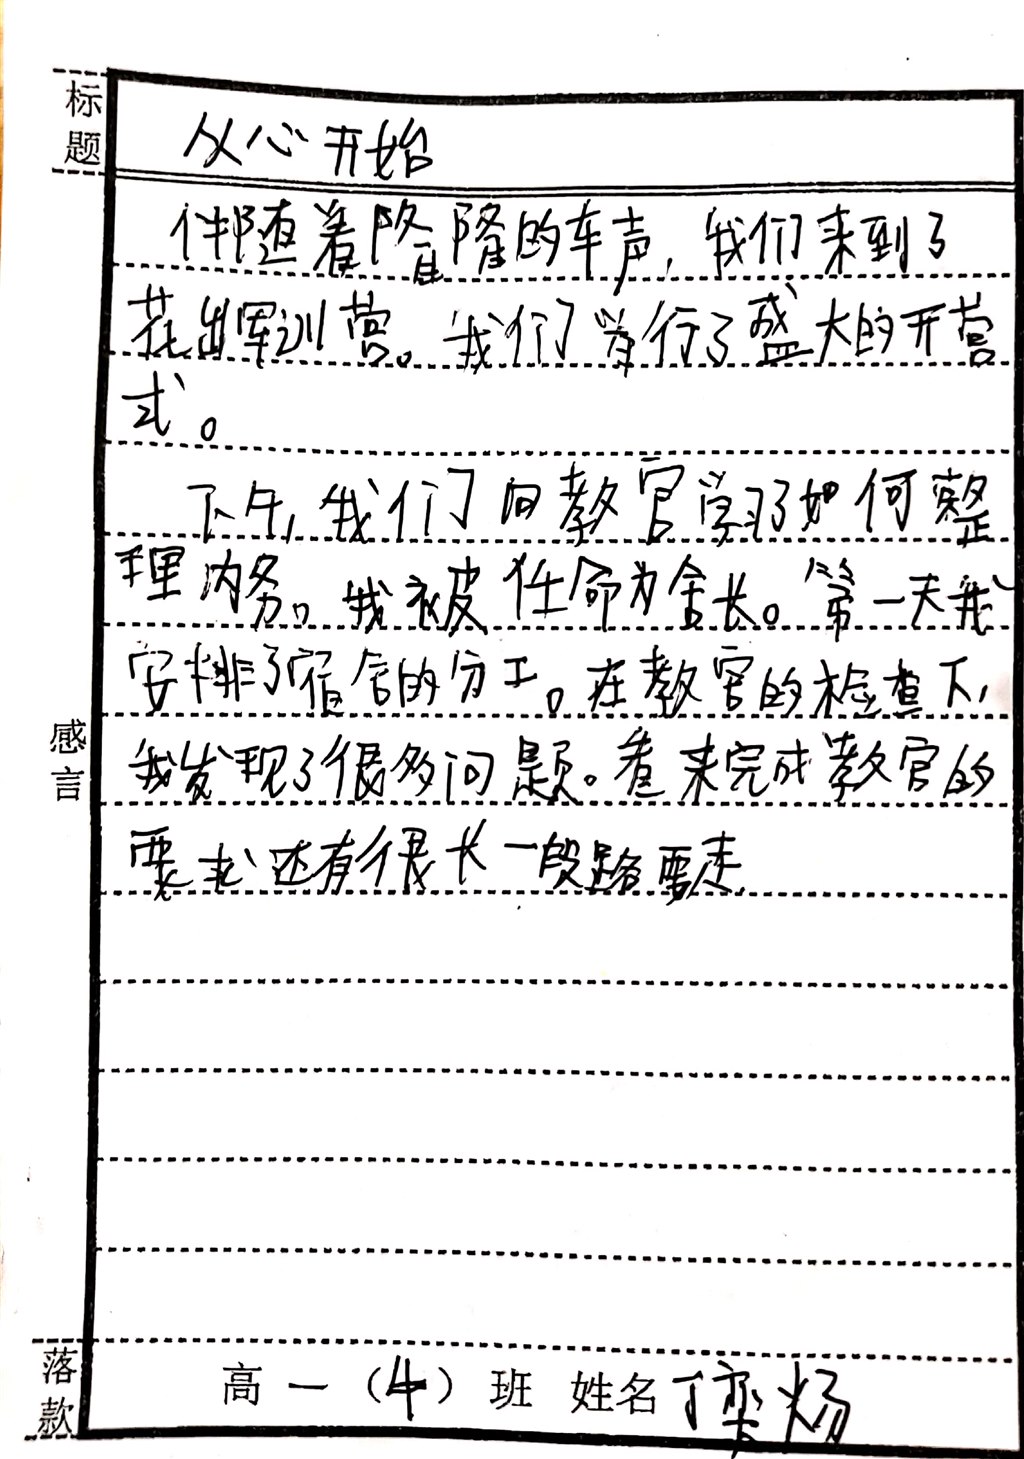 标题
从心开始
伴随着隆隆的车声，我们来到了
花出军训营。我们举行了盛大的开营
式。
下午，我们向教官学习了如何整
理内务。我被任命为舍长。第一天我
安排了宿舍的分工。在教官的检查下，
我发现了很多问题。看来完成教官的
要求还有很长一段路要走
感言
落款
高一（4）班 姓名